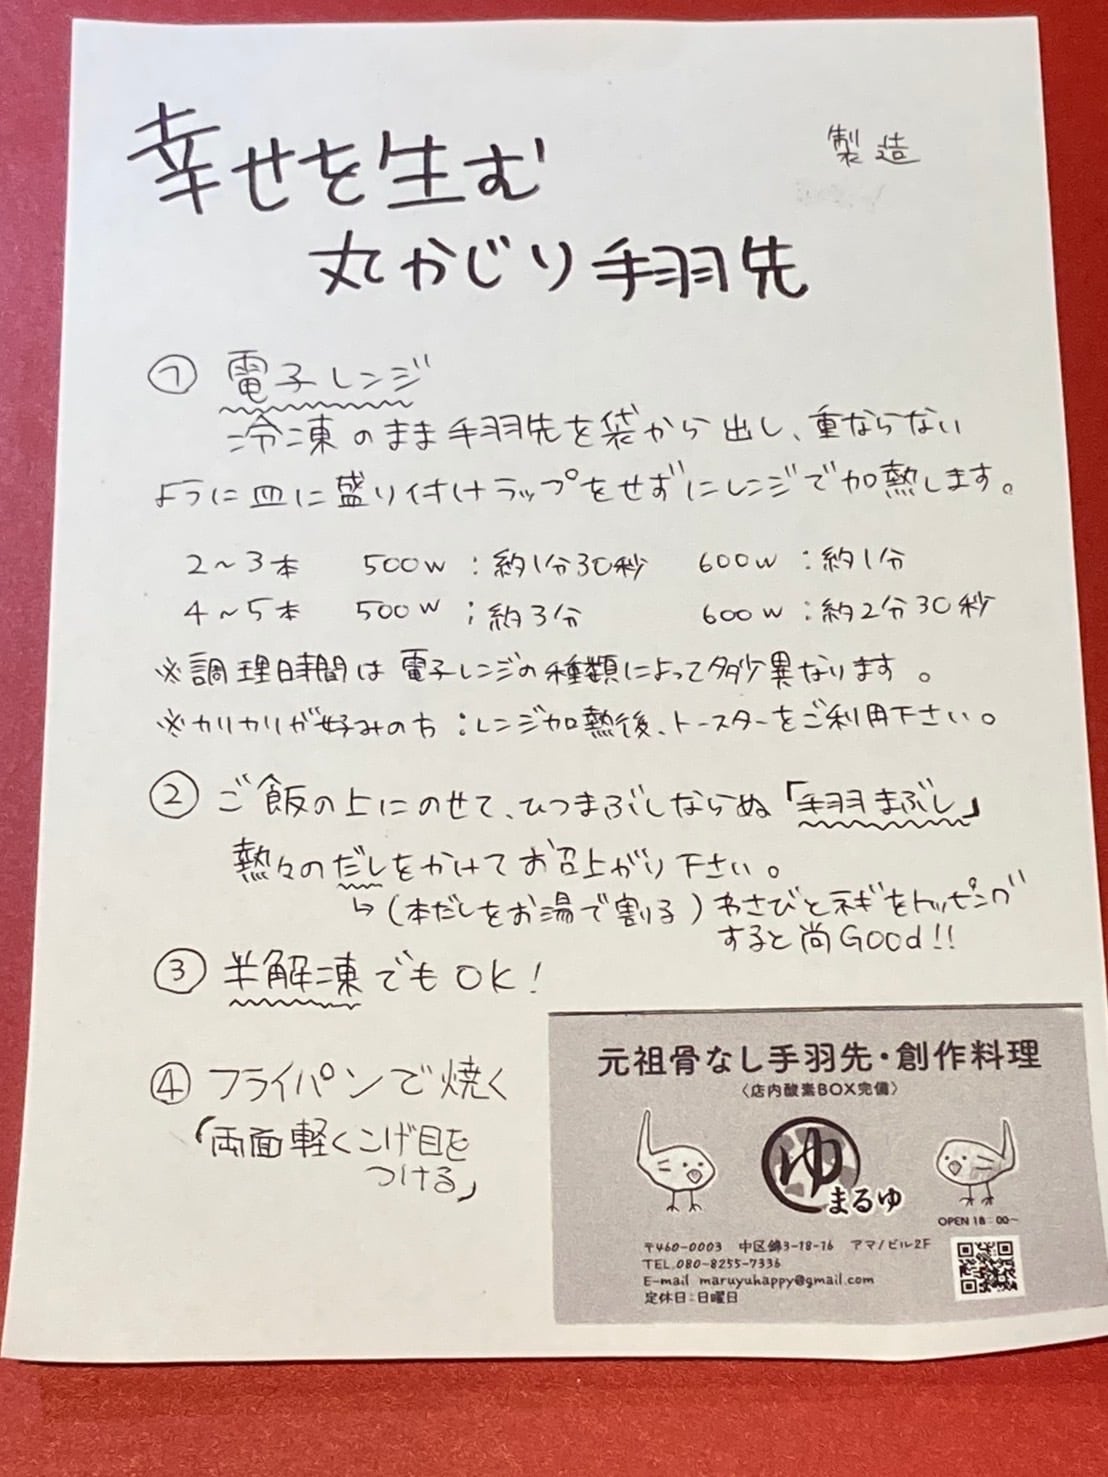 幸せを生む
製造
丸かじり手羽先
① 電子レンジ
冷凍のまま手羽先を袋から出し、重ならない
ように皿に盛り付けラップをせずにレンジで加熱します。
2〜3本 500W：約1分30秒 600W：約1分
4〜5本 500W：約3分 600W：約2分30秒
※調理時間は電子レンジの種類によって多少異なります。
※カリカリが好みの方：レンジ加熱後、トースターをご利用下さい。
② ご飯の上にのせて、ひつまぶしならぬ「手羽まぶし」
熱々のだしをかけてお召上がり下さい。
↳(本だしをお湯で割る) わさびとネギをトッピング
すると尚Good!!
③ 半解凍でもOK!
④ フライパンで焼く
「両面軽くこげ目を
つける」
元祖骨なし手羽先・創作料理
〈店内酸素BOX完備〉
ゆ
まるゆ
OPEN 18：00~
〒460-0003 中区錦3-18-16 アマノビル2F
TEL.080-8255-7336
E-mail maruyuhappy@gmail.com
定休日：日曜日